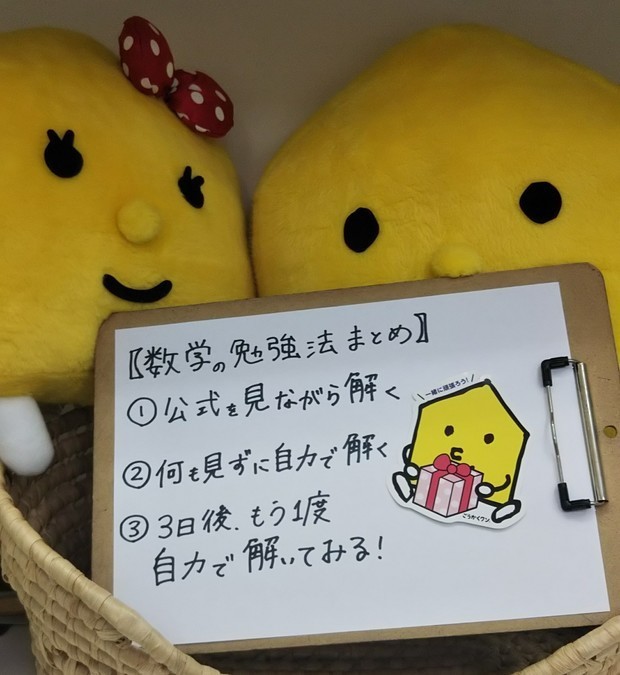 〖数学の勉強法まとめ〗
① 公式を見ながら解く
② 何も見ずに自力で解く
③ 3日後、もう1度
自力で解いてみる!
\一緒に頑張ろう!/
ごうかくワン